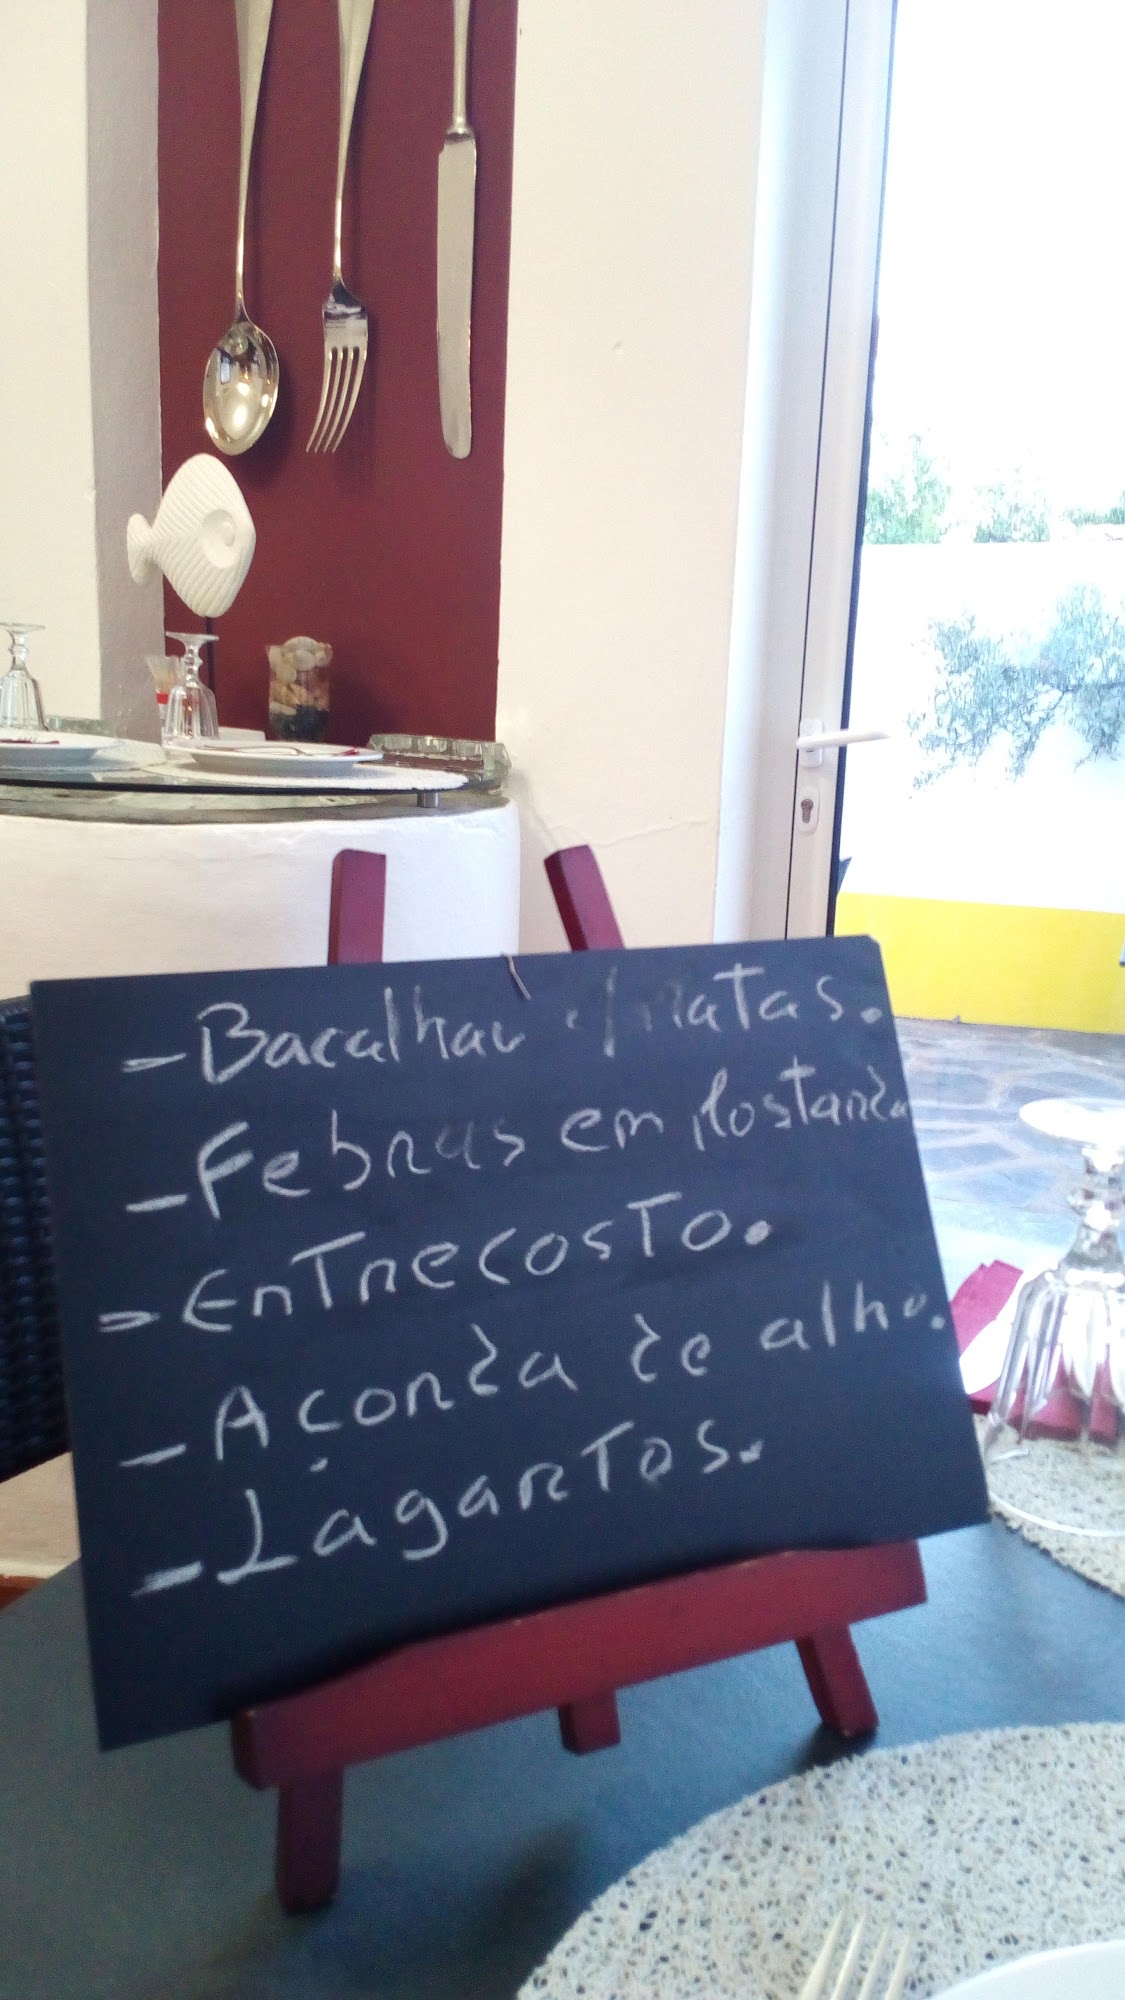 - Bacalhau c/ natas.
- Febras em mostarda
- Entrecosto.
- Açorda de alho.
- Lagartos.